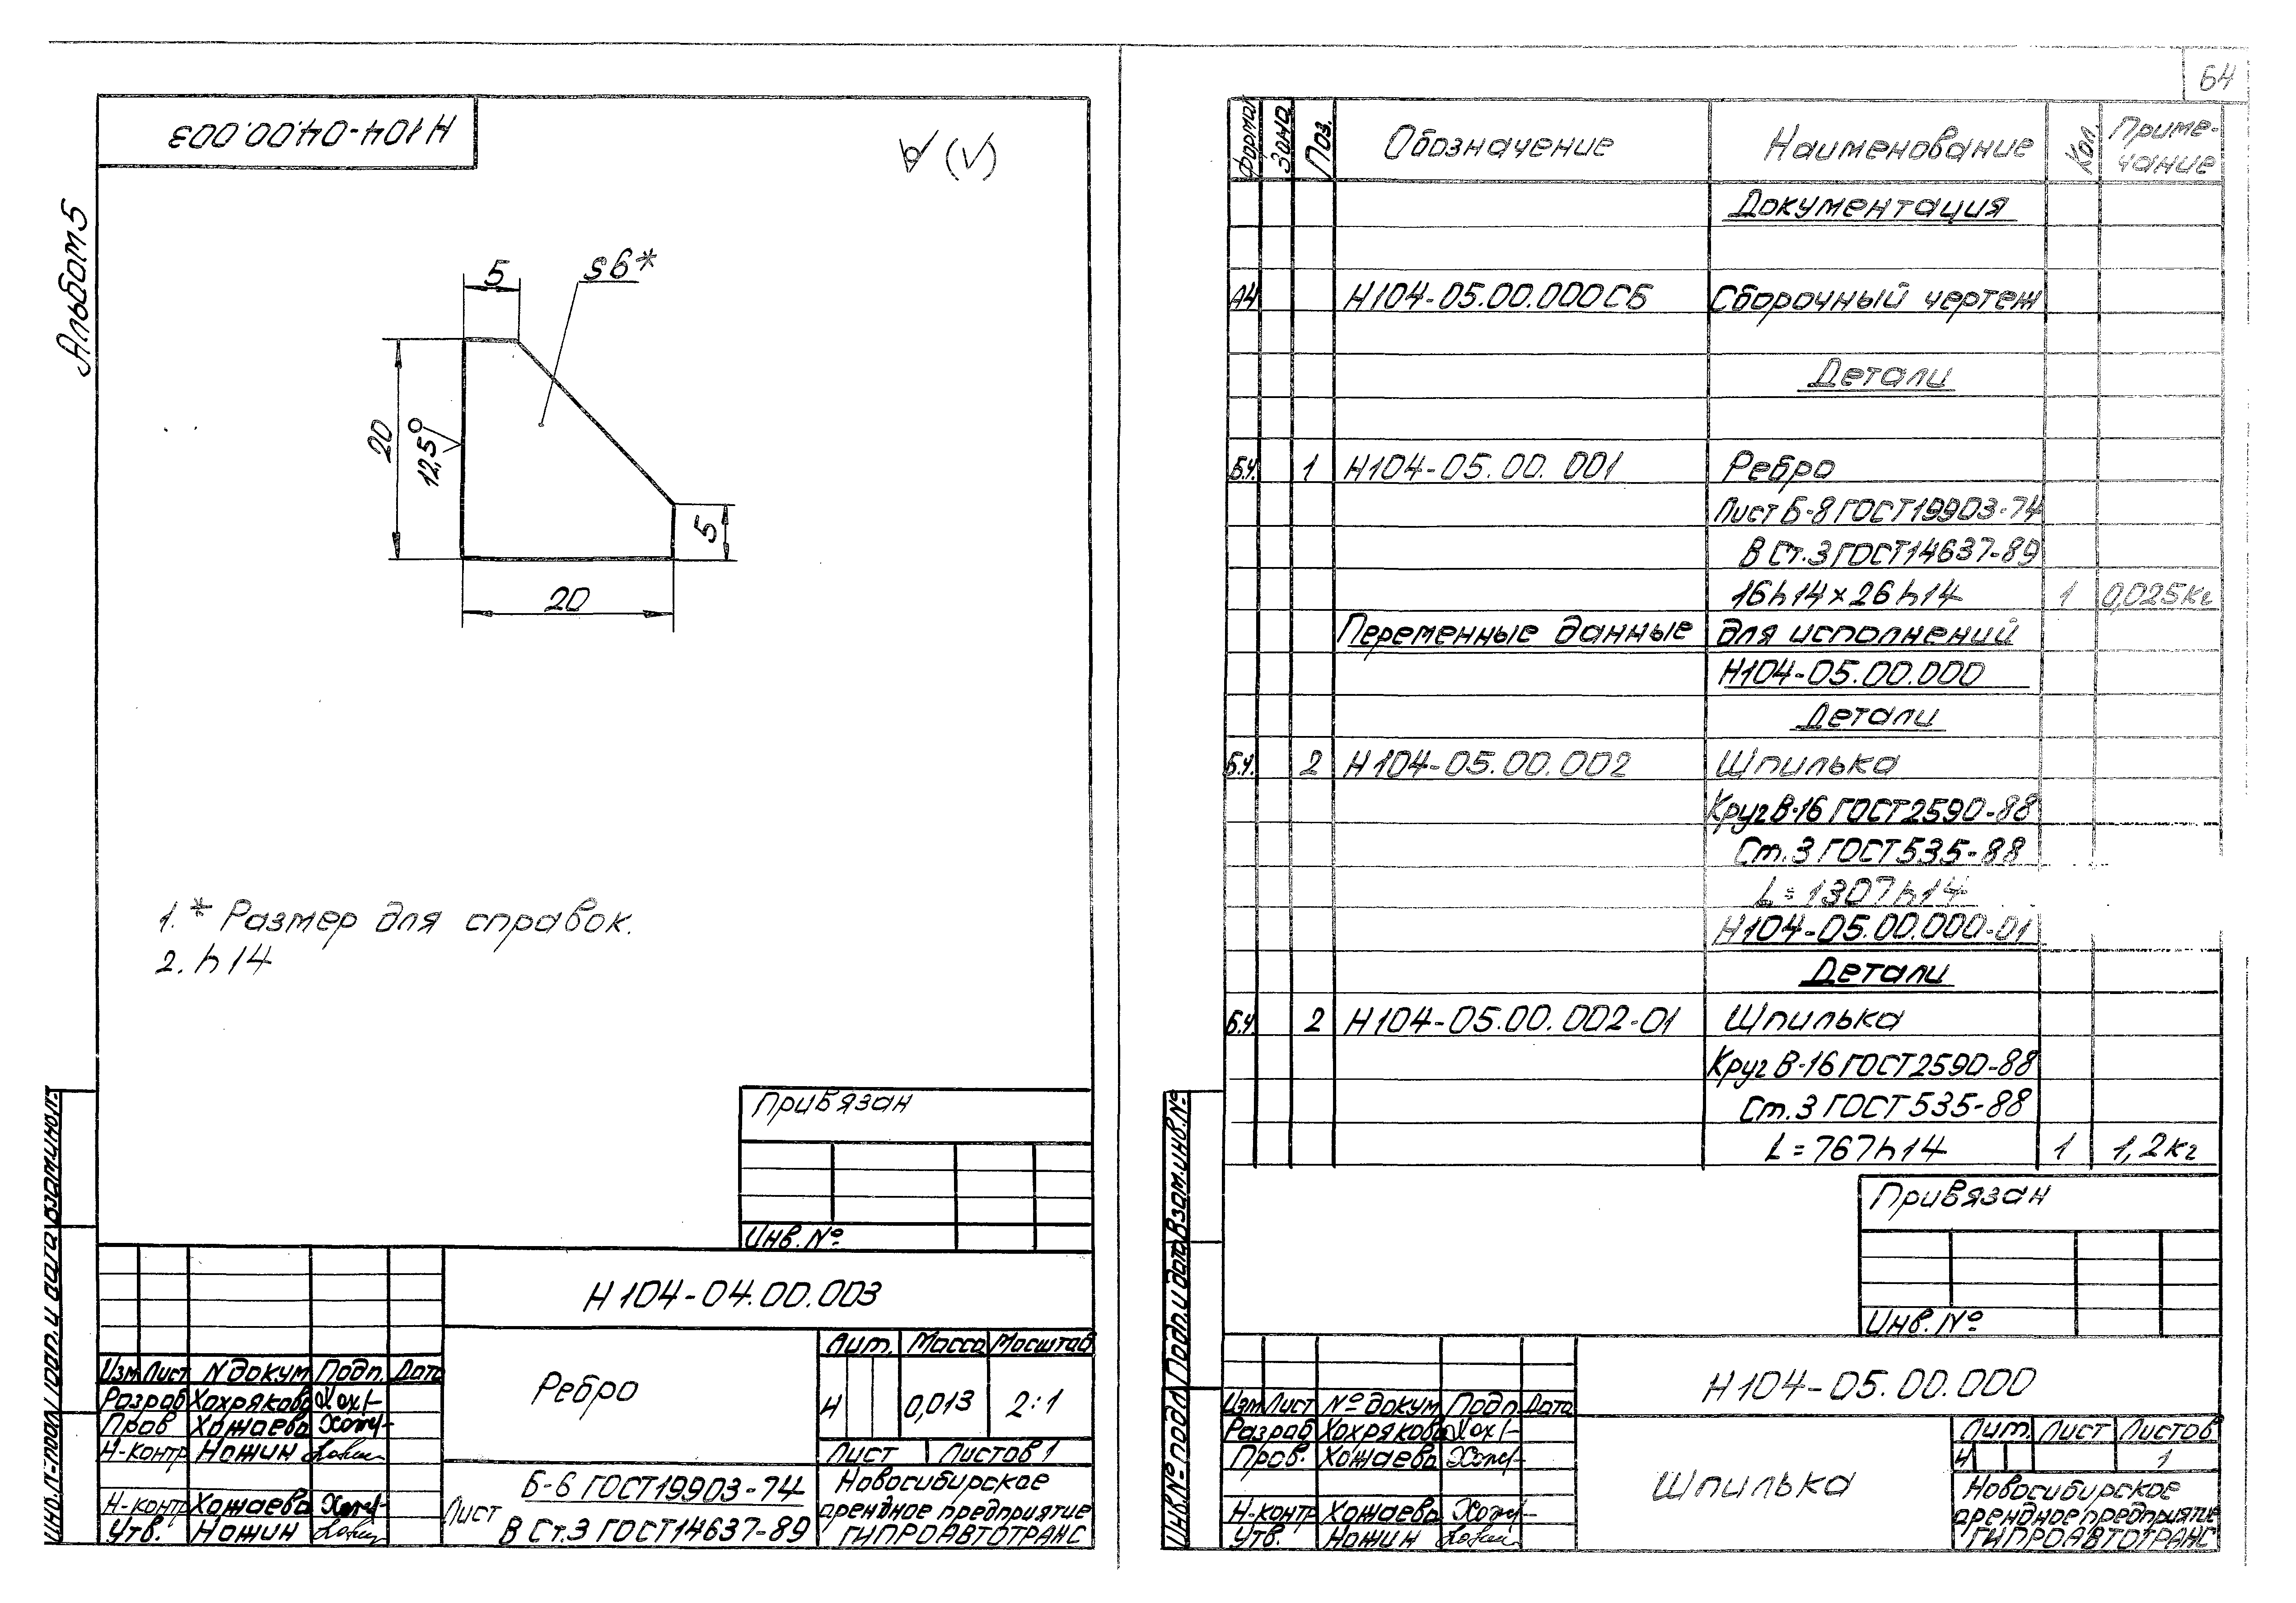 64
Н104-04.00.003
Альбом 5
(√)
5
s6*
20
12,5
5
20
1.* Размер для справок.
2. h14
Привязан
Инв. №
Н104-04.00.003
Изм Лист N докум Подп. Дата
Разраб Хохрякова
Пров Хожаева
Н-контр Ножин
Н-контр Хожаева
Утв. Ножин
Ребро
Лит. Масса Масштаб
И 0,013 2:1
Лист Листов 1
Лист Б-6 ГОСТ19903-74
В Ст.3 ГОСТ14637-89
Новосибирское
арендное предприятие
ГИПРОАВТОТРАНС
Формат Зона Поз. Обозначение Наименование Кол. Приме-
чание
Документация
А4 Н104-05.00.000СБ Сборочный чертеж
Детали
Б.ч. 1 Н104-05.00.001 Ребро
Лист Б-8 ГОСТ19903-74
В Ст.3 ГОСТ14637-89
16h14 x 26h14 1 0,025кг
Переменные данные для исполнений
Н104-05.00.000
Детали
Б.ч. 2 Н104-05.00.002 Шпилька
Круг В-16 ГОСТ2590-88
Ст.3 ГОСТ535-88
L=1307h14
Н104-05.00.000-01
Детали
Б.ч. 2 Н104-05.00.002-01 Шпилька
Круг В-16 ГОСТ2590-88
Ст.3 ГОСТ535-88
L=767h14 1 1,2кг
Привязан
Инв. №
Инв.№ подл Подп. и дата Взам.инв.№
Н104-05.00.000
Изм Лист № докум Подп. Дата
Разраб Хохрякова
Пров. Хожаева
Н-контр Хожаева
Утв. Ножин
Шпилька
Лит. Лист Листов
И 1
Новосибирское
арендное предприятие
ГИПРОАВТОТРАНС